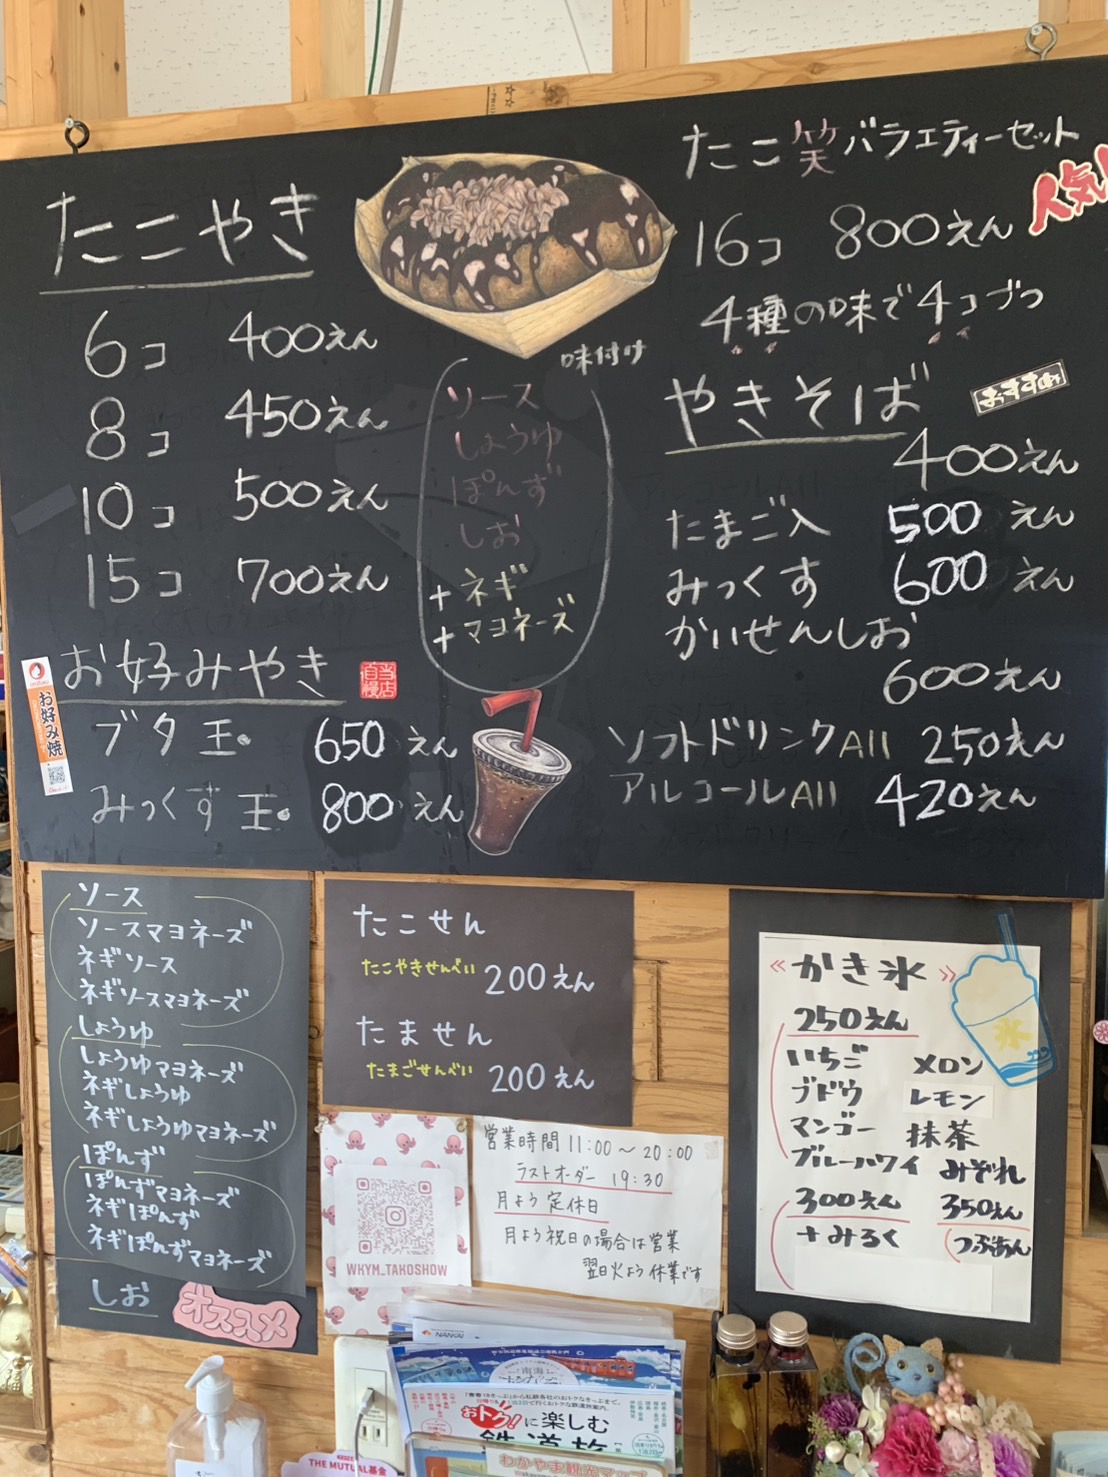 たこやき
6コ 400えん
8コ 450えん
10コ 500えん
15コ 700えん
お好みやき
当店自慢
ブタ玉。 650えん
みっくす玉。 800えん
お好み焼
味付け
ソース
しょうゆ
ぽんず
しお
+ネギ
+マヨネーズ
たこ笑バラエティーセット
人気!
16コ 800えん
4種の味で4コづつ
やきそば
おすすめ
400えん
たまご入 500えん
みっくす 600えん
かいせんしお
600えん
ソフトドリンクAll 250えん
アルコールAll 420えん
ソース
ソースマヨネーズ
ネギソース
ネギソースマヨネーズ
しょうゆ
しょうゆマヨネーズ
ネギしょうゆ
ネギしょうゆマヨネーズ
ぽんず
ぽんずマヨネーズ
ネギぽんず
ネギぽんずマヨネーズ
しお
オススメ
たこせん
たこやきせんべい 200えん
たません
たまごせんべい 200えん
WKYM_TAKOSHOW
営業時間 11:00〜20:00
ラストオーダー 19:30
月よう定休日
月よう祝日の場合は営業
翌日火よう休業です
《かき氷》
氷
250えん
いちご メロン
ブドウ レモン
マンゴー 抹茶
ブルーハワイ みぞれ
300えん 350えん
+みるく つぶあん
NANKAI
南海
おトク!に楽しむ
鉄道旅
わかやま観光マップ
THE MUTUAL基金